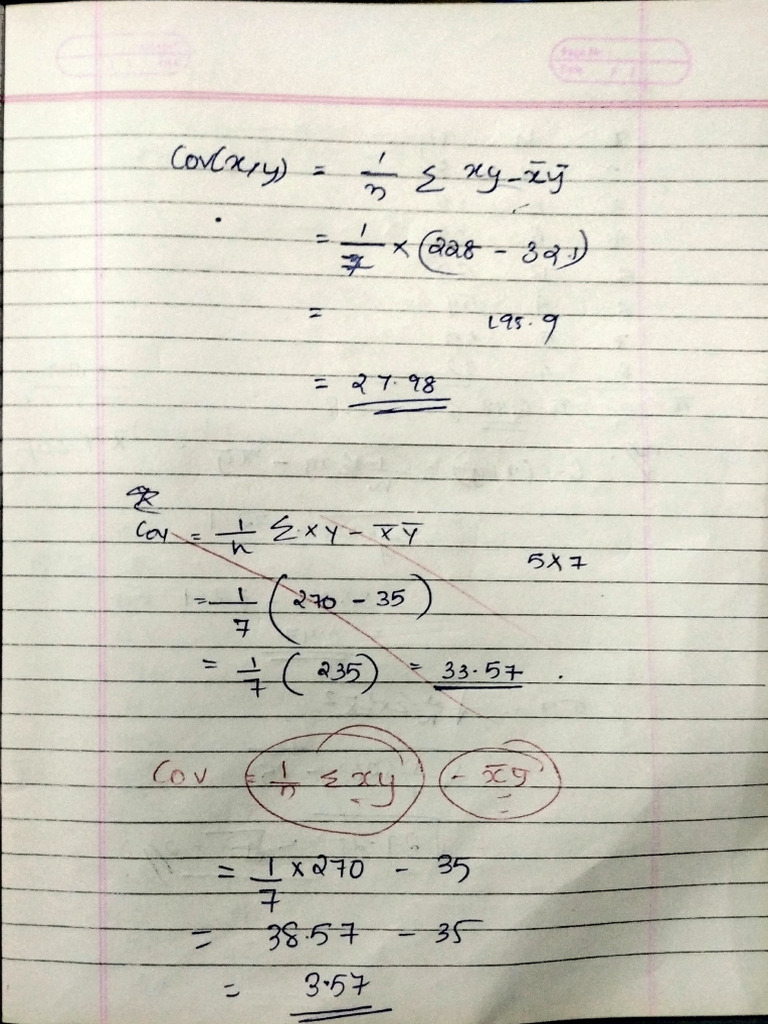 Cov(x,y) = 1/n Σ xy - x̄ȳ
= 1/7 × (228 - 32.1)
= 195.9
= 27.98
Cov = 1/n Σxy - x̄ȳ
5×7
= 1/7 (270 - 35)
= 1/7 (235) = 33.57
Cov = 1/n Σxy - x̄ȳ
= 1/7 × 270 - 35
= 38.57 - 35
= 3.57